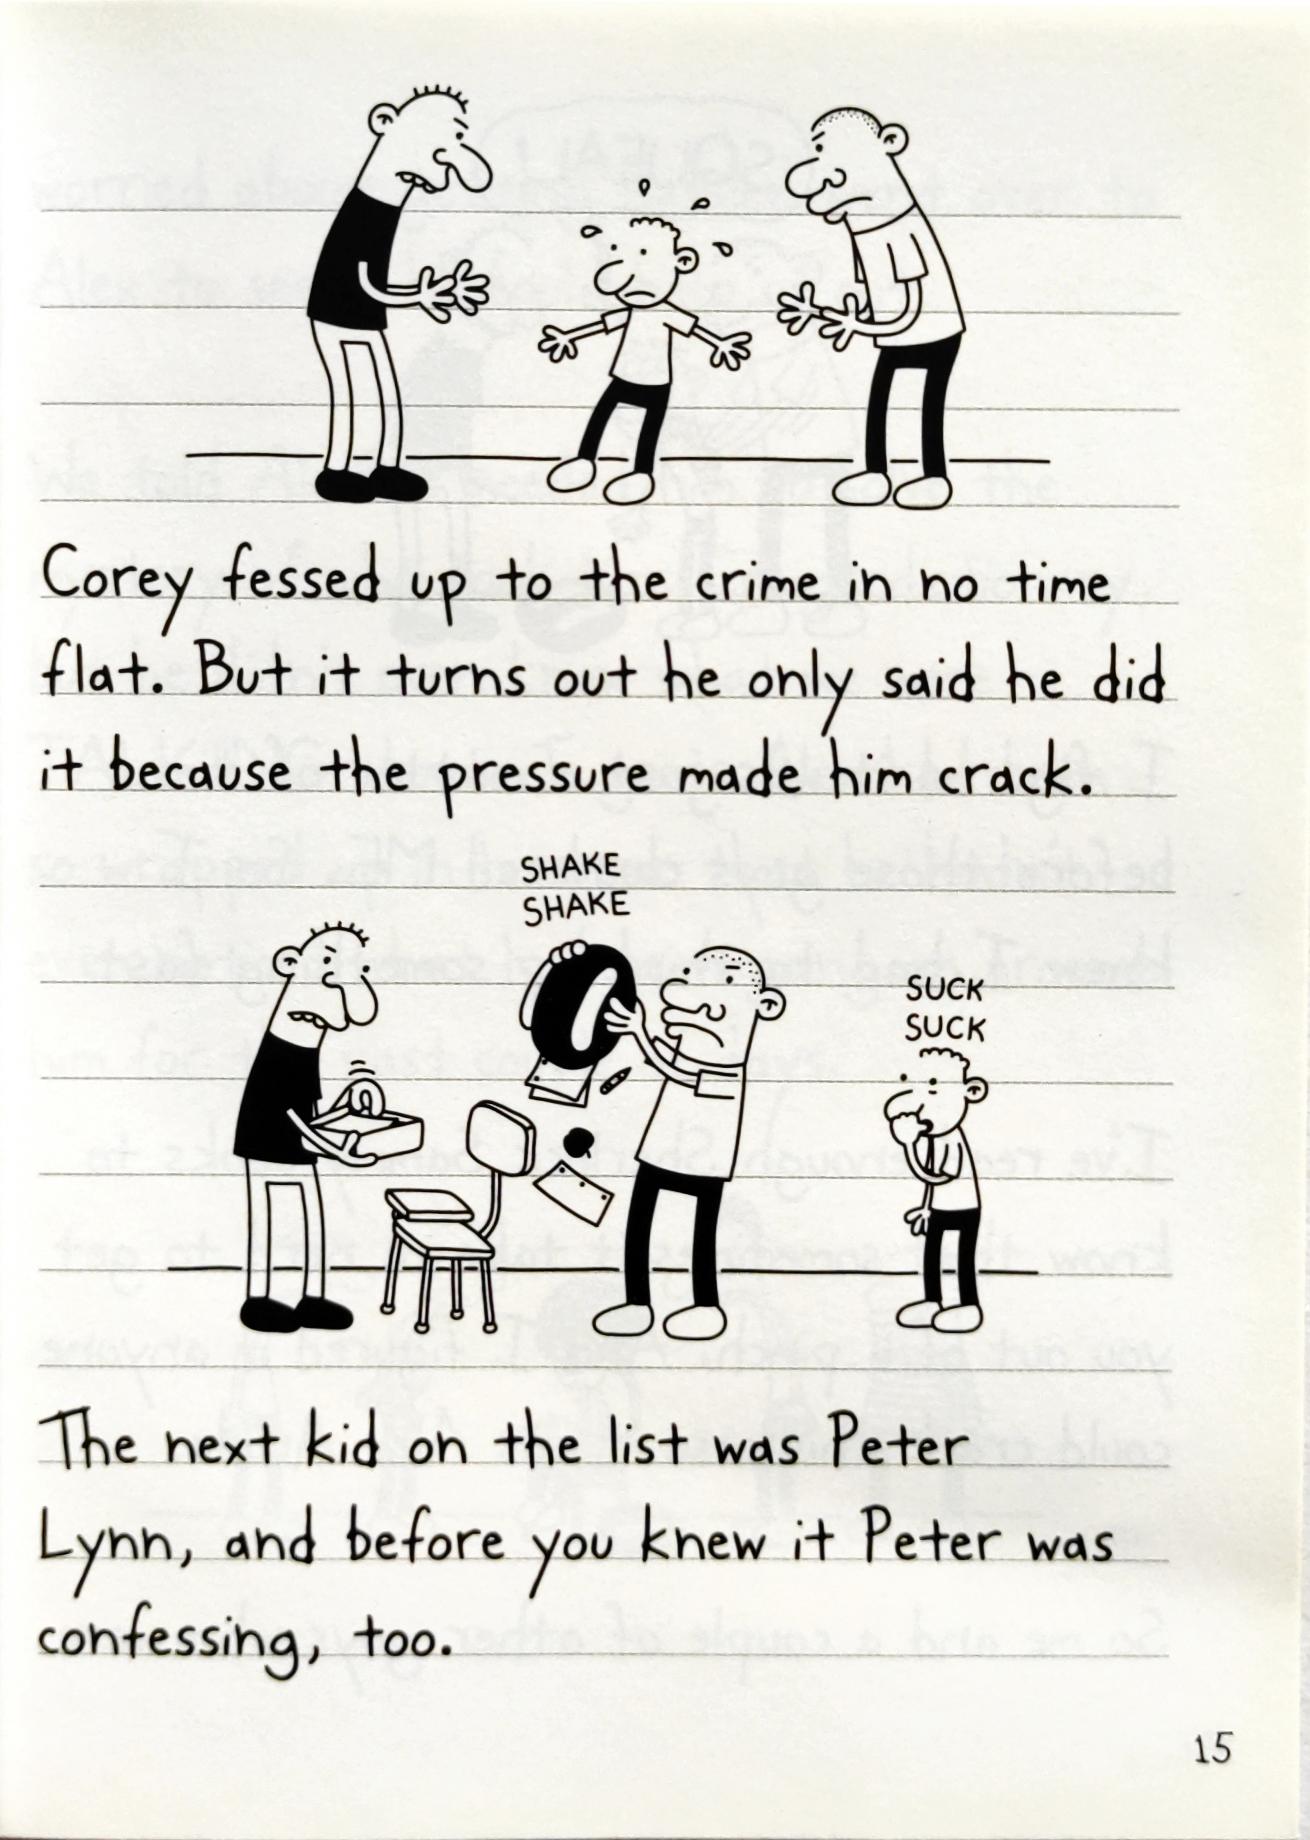 Corey fessed up to the crime in no time
flat. But it turns out he only said he did
it because the pressure made him crack.
SHAKE
SHAKE
SUCK
SUCK
The next kid on the list was Peter
Lynn, and before you knew it Peter was
confessing, too.
15